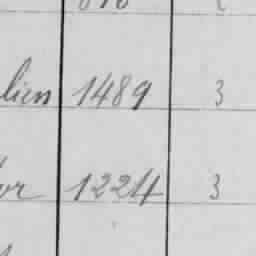 lien 1489 3
or 1224 3